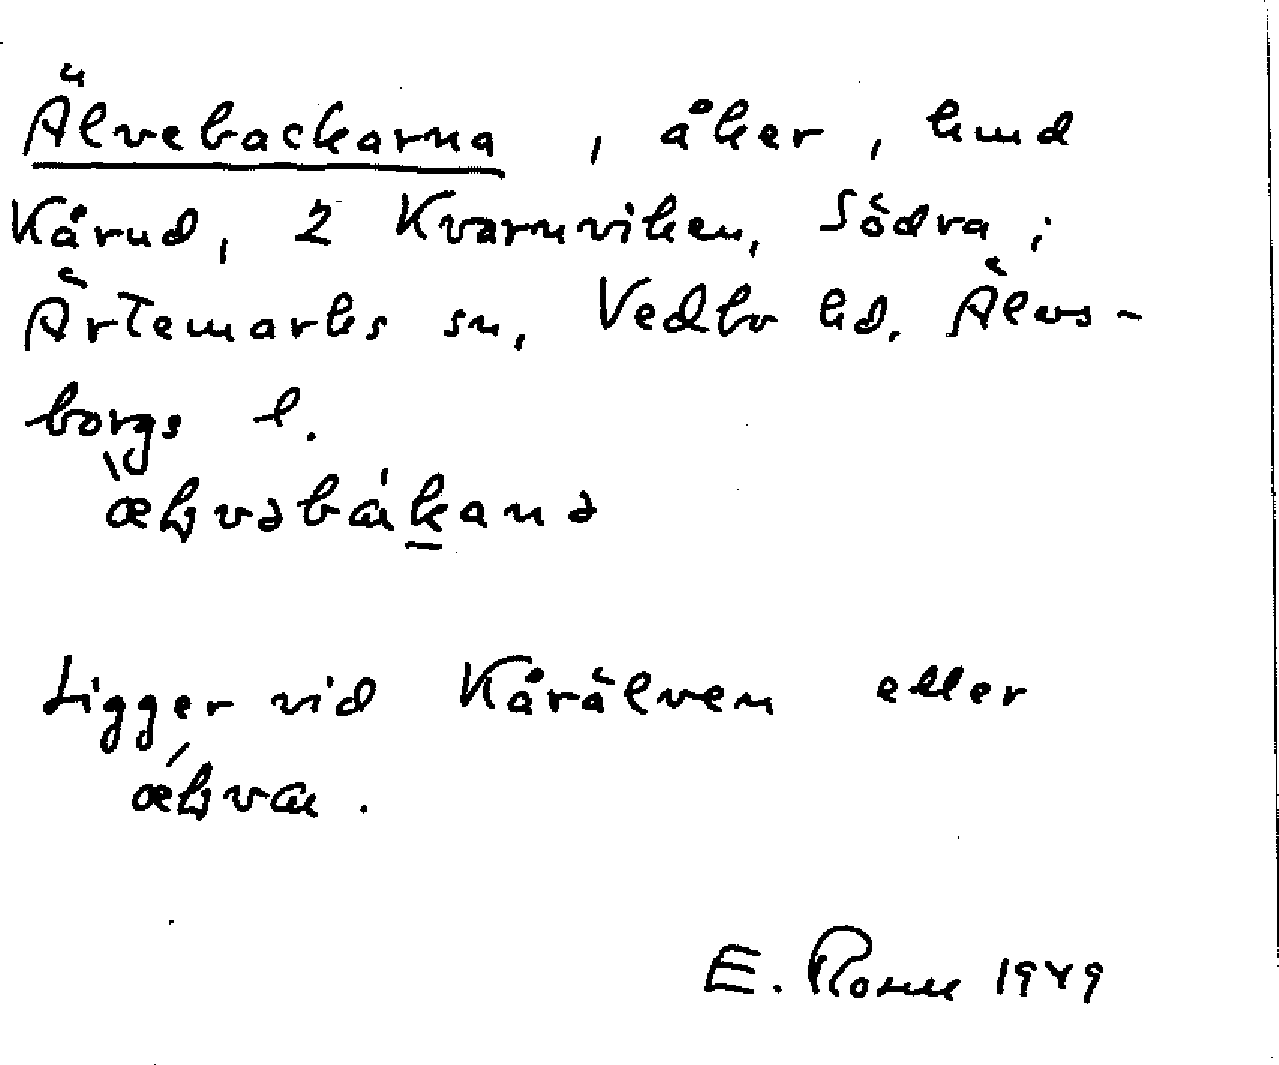 Älvebackarna, åker, hmd
Kårud, 2 Kvarnviken, Södra i
Ärtemarks sn, Vedbo hd. Älvs-
borgs l.
Ligger vid Kårälven eller
E. 1949